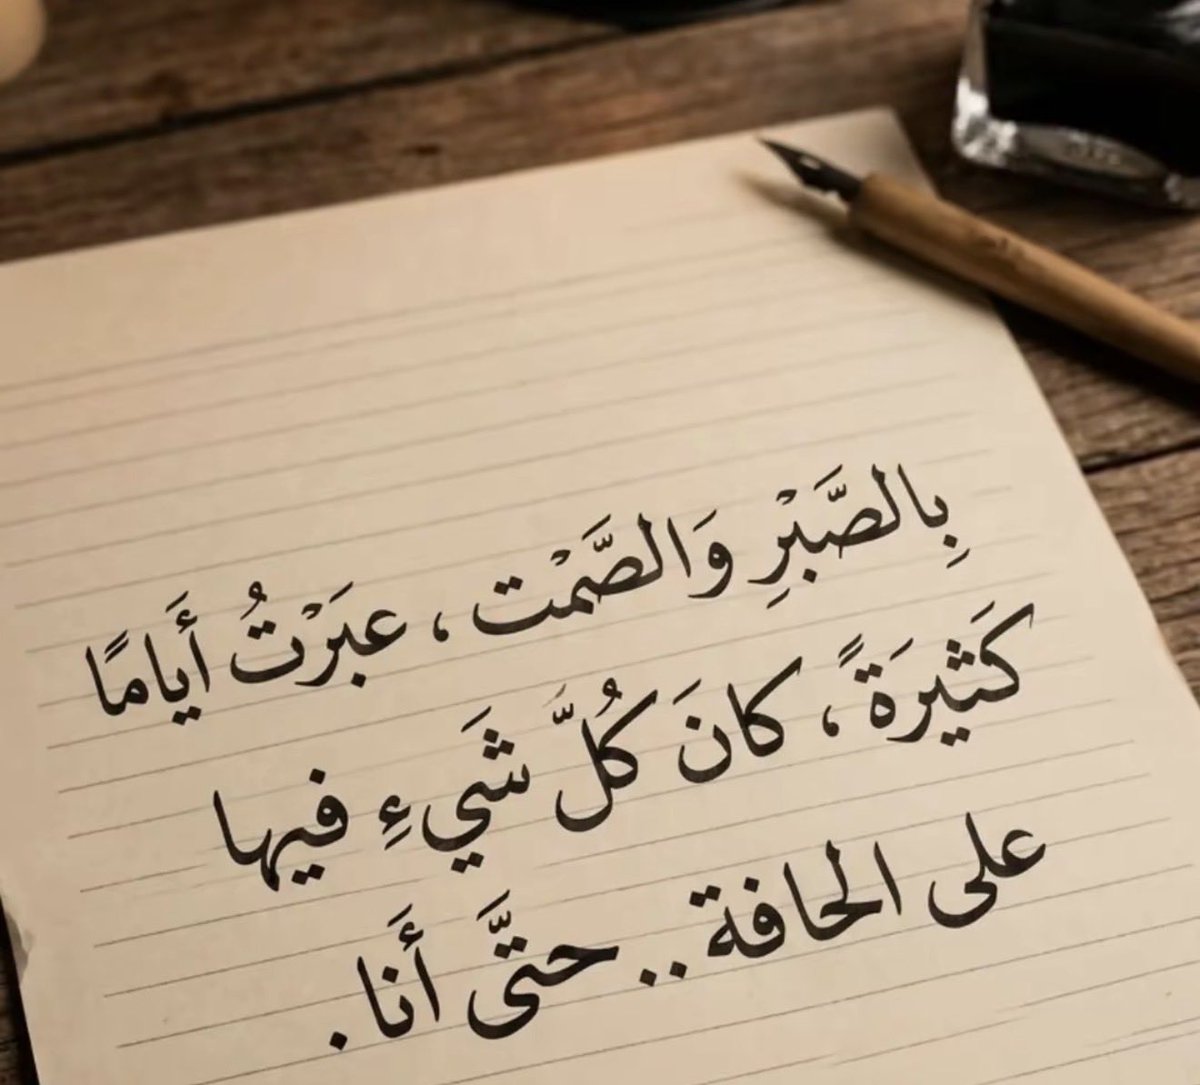 بِالصَّبْرِ وَالصَّمْت ، عبَرْتُ أَيامًا
كَثيرَةً ، كانَ كُلَّ شَيءٍ فيها
على الحافة .. حتَّى أَنا .